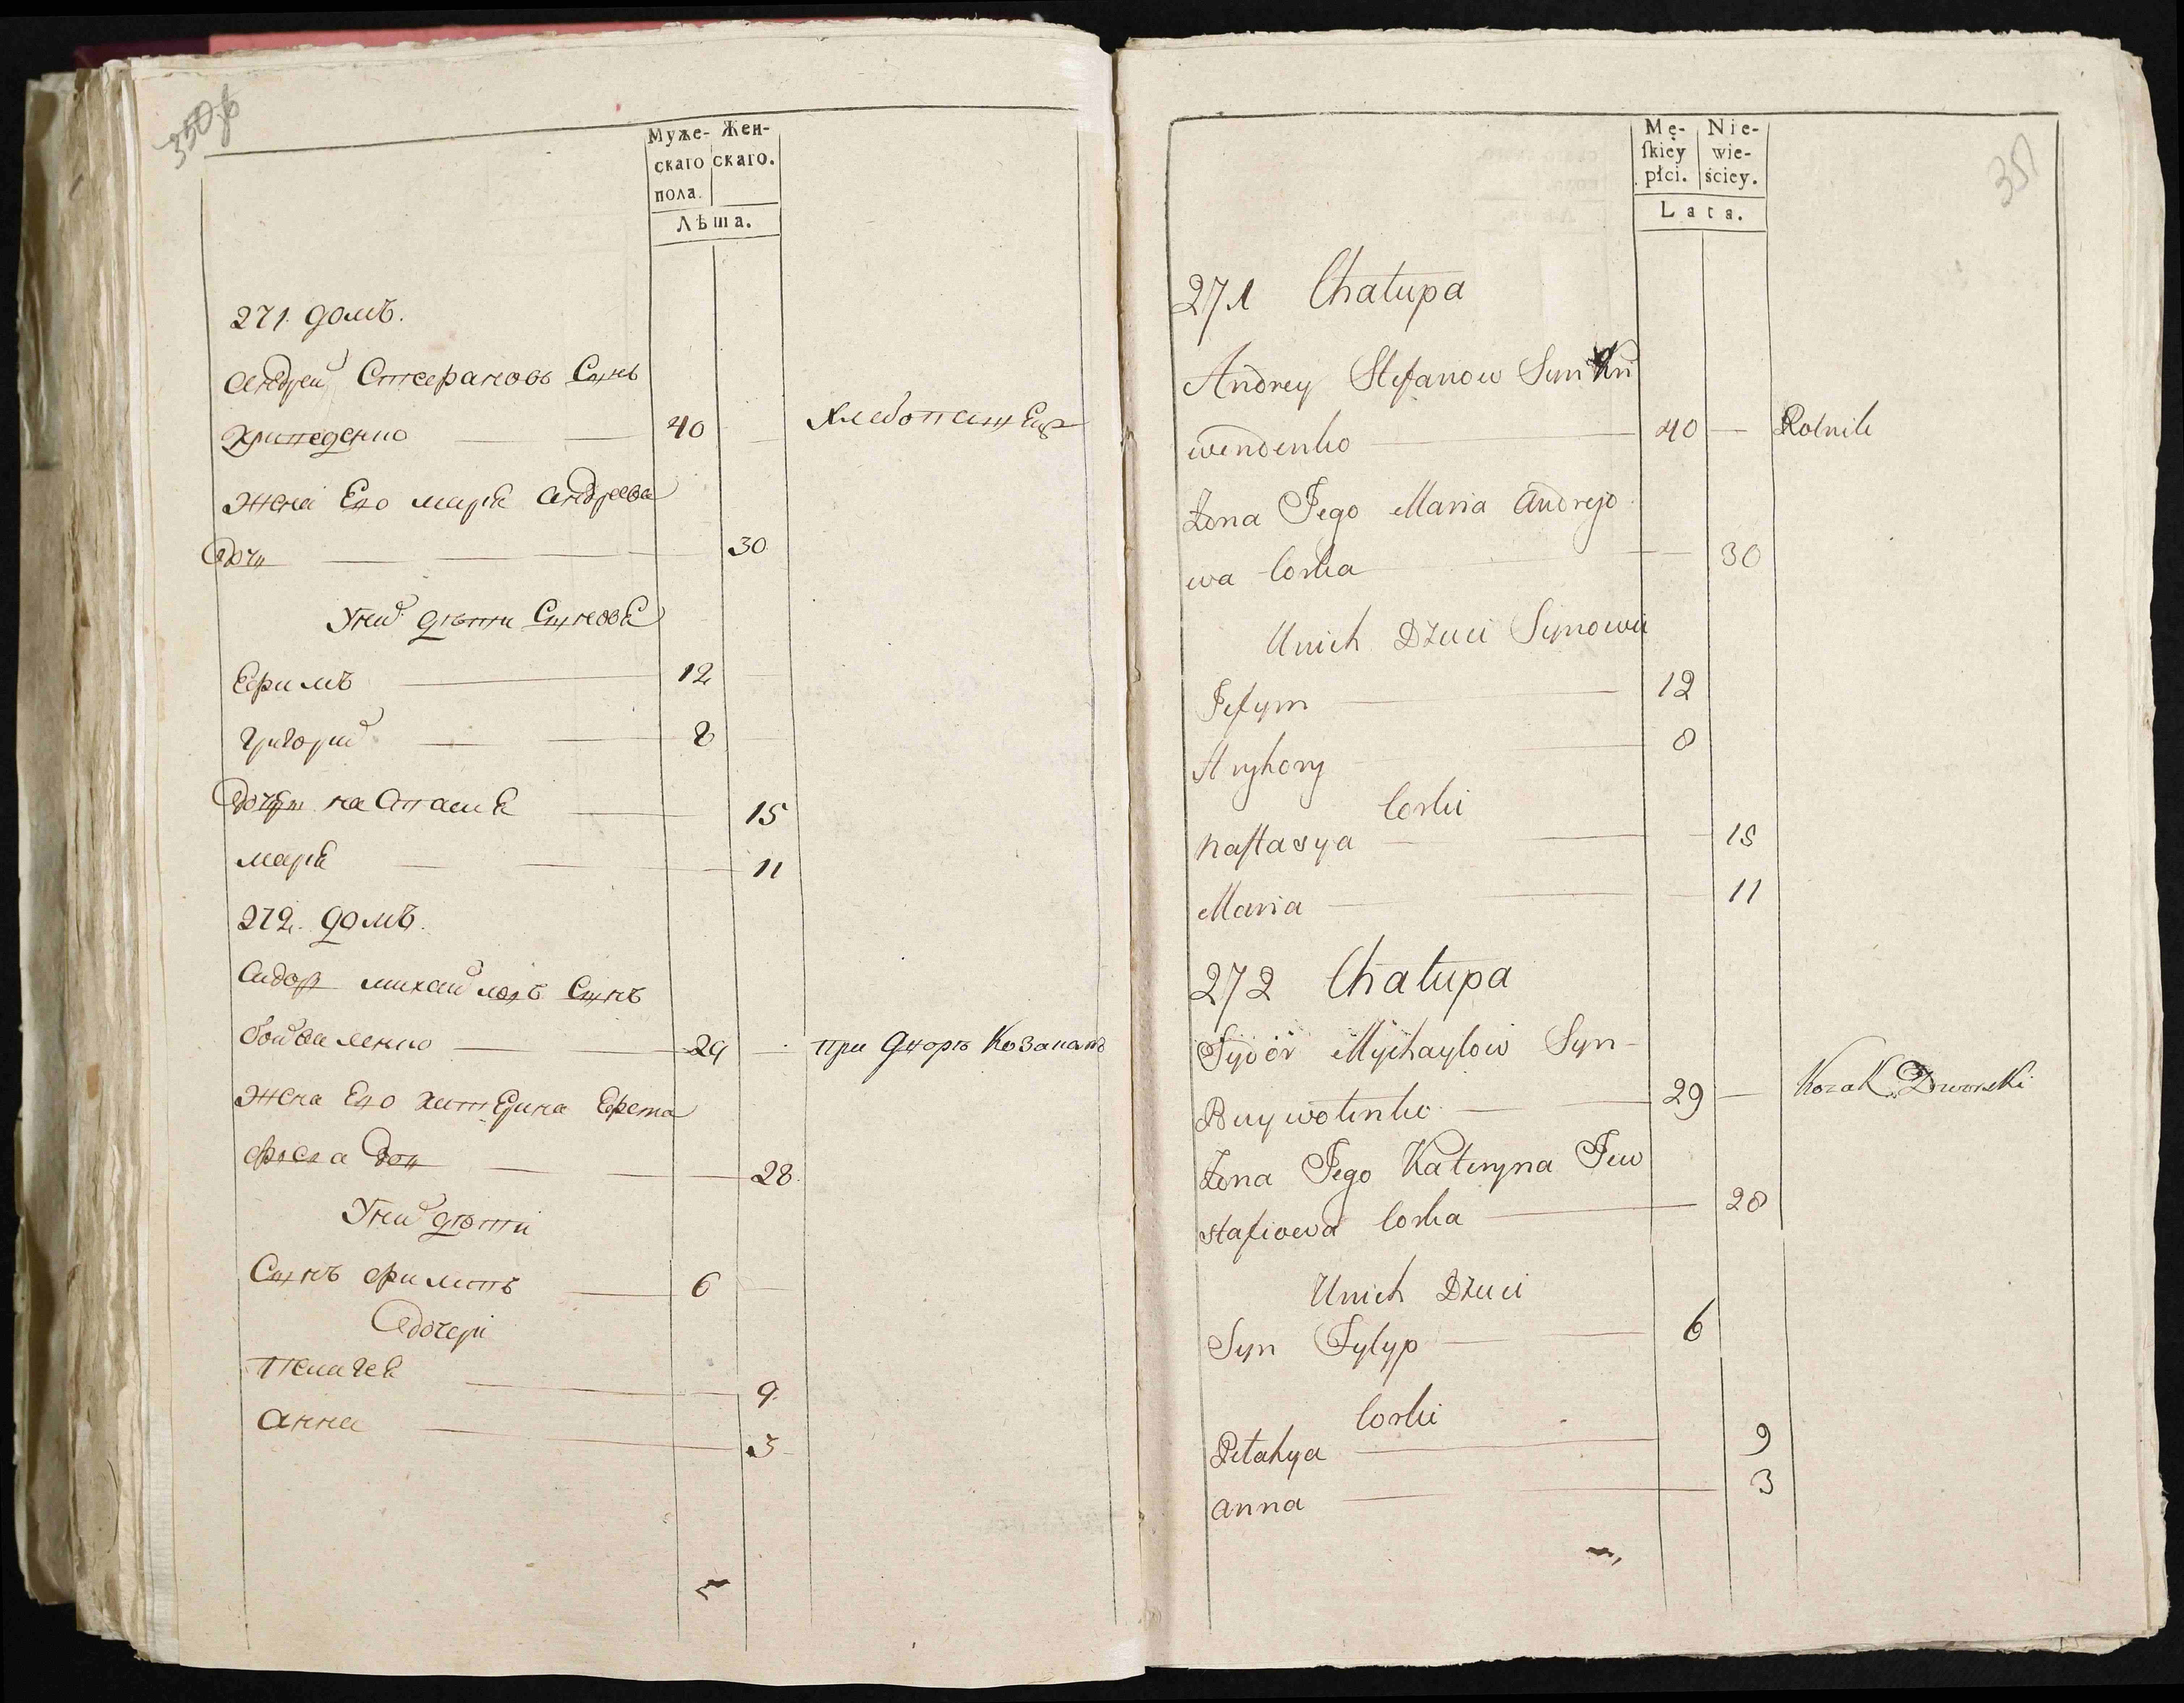 350 об
Муже- Жен-
скаго скаго.
пола.
Лѣта.
271. домъ.
Андрей Стефановъ Сынъ
40 хлебопашец
Жена Его мария андреева
дочь 30
У них дѣти Сыновя
Ефимъ 12
Григорий 8
дочери настасия 15
мария 11
272. домъ.
Сидор михайловъ Сынъ
29 при дворѣ Козакомъ
Жена Его катерина Евста
фиева дочь 28.
У них дѣти
Сынъ филипъ 6
дочери
Пелагея 9
анна 3
351
Mę- Nie-
ſkiey wie-
płci. ściey.
Lata.
271 Chałupa
Andrey Stefanow Syn Kri
wendenko 40 Rolnik
Żona Jego Maria Andrejo
wa Corka 30
U nich Dzieci Synowie
Jefym 12
Hryhory 8
Corki
Nastasya 15
Maria 11
272 Chałupa
Sydor Mychayłow Syn
Buywołenko 29 Kozak Dworski
Żona Jego Kateryna Jew
stafiowa Corka 28
U nich Dzieci
Syn Fylyp 6
Corki
Pełahya 9
Anna 3